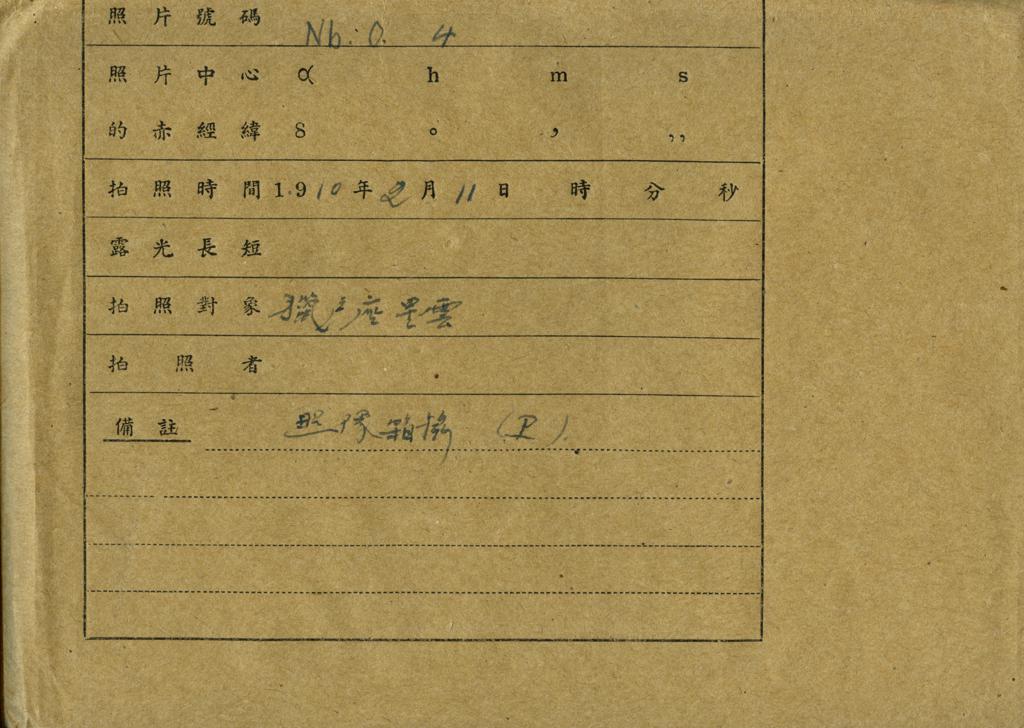 照片號碼 Nb. O. 4
照片中心 α h m s
的赤經緯 δ ° ′ ″
拍照時間 1910年2月11日 時 分 秒
露光長短
拍照對象 獵戶座星雲
拍照者
備註 照像箱攝 (P).